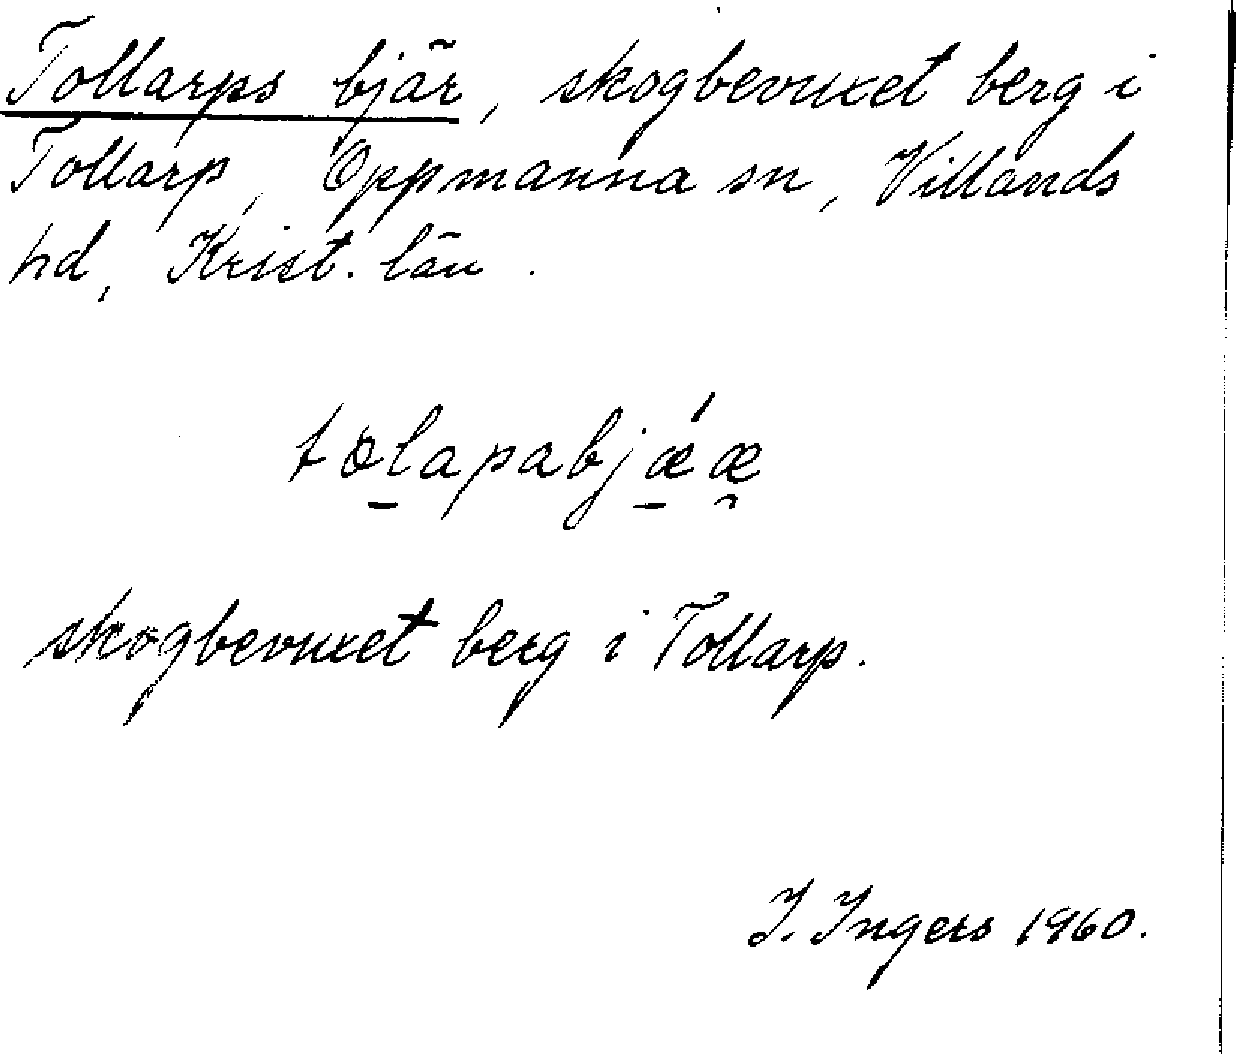 Tollarps bjär, skogbevuxet berg i
Tollarp, Oppmanna sn, Villands
hd, Krist. län.
tolapabjǽæ
skogbevuxet berg i Tollarp.
I. Ingers 1960.